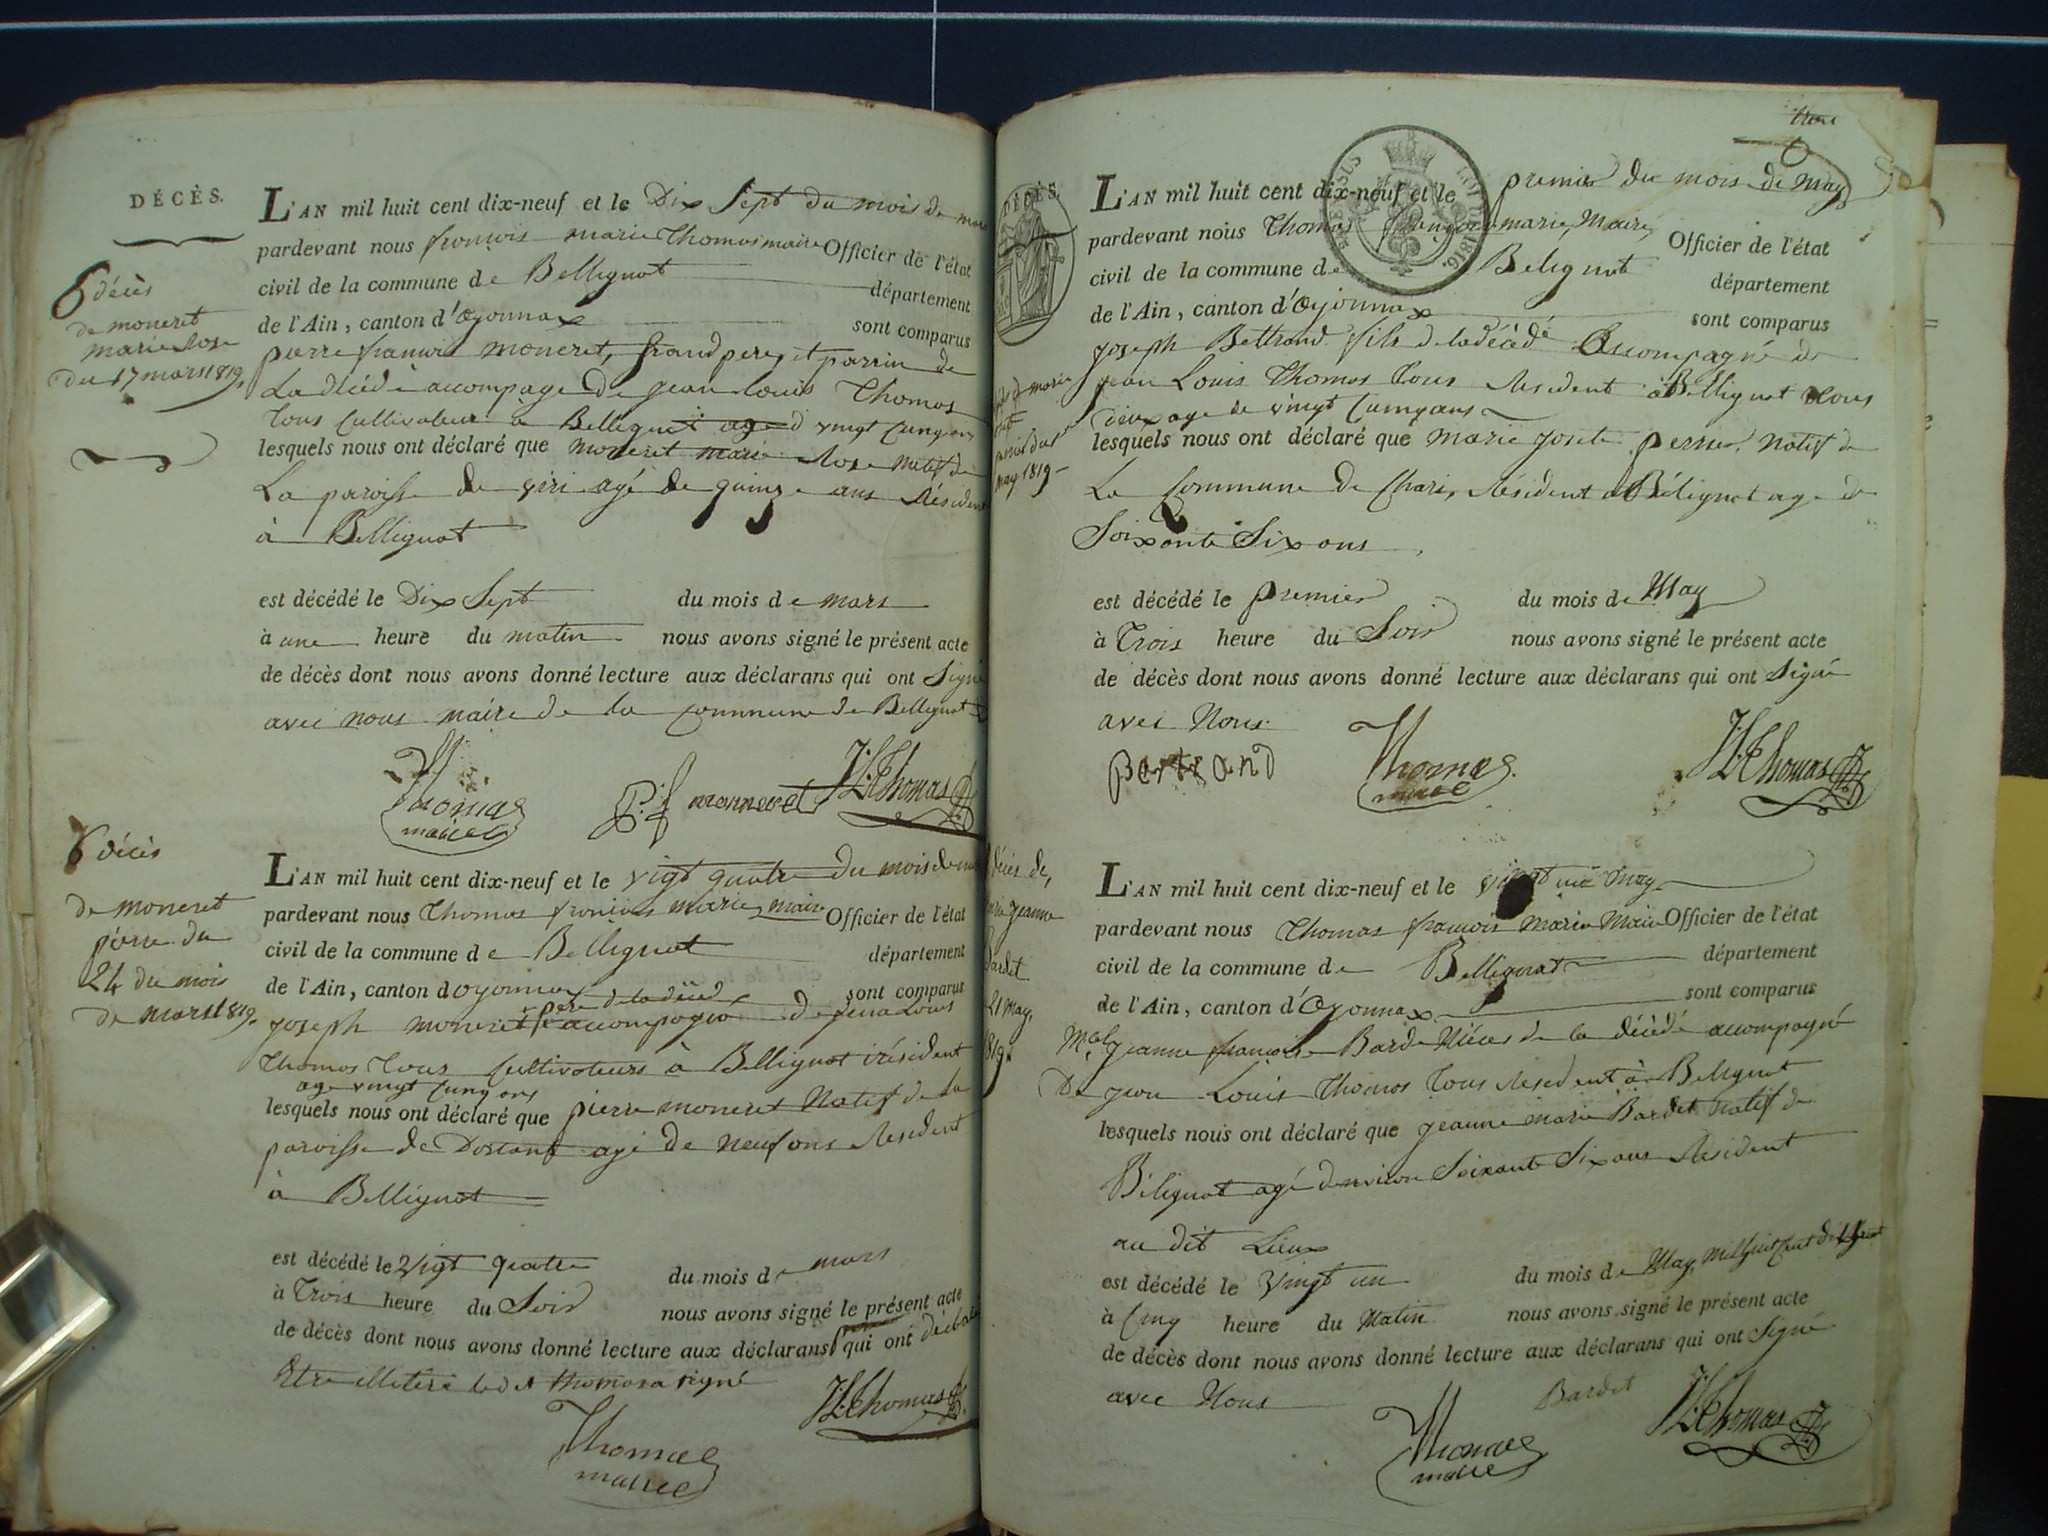 DÉCÈS.
L'AN mil huit cent dix-neuf et le Dix Sept du mois de
pardevant nous francois marie Thomas maire Officier de l'état
civil de la commune de Bellignat département
de l'Ain, canton d'Oyonnax sont comparus
pierre francois moneret, grand pere et parrin de
La décédé accompage de jean Louis Thomas
Tous Cultivateur à Bellignat age d vingt cunq ans
lesquels nous ont déclaré que moneret marie Rose natif de
La paroisse de viri agé de quinze ans Résident
à Bellignat
est décédé le Dix Sept du mois de mars
à une heure du matin nous avons signé le présent acte
de décès dont nous avons donné lecture aux déclarans qui ont Signé
avec nous maire de la commune de Bellignat
Thomas
maire
P. f monneret
J. L. Thomas
décès
de moneret
marie Rose
du 17 mars 1819,
L'AN mil huit cent dix-neuf et le vigt quatre du mois de
pardevant nous Thomas francois marie maire Officier de l'état
civil de la commune de Bellignat département
de l'Ain, canton d'oyonnax sont comparus
père de la décéd
joseph moneret accompagné de Louis
Thomas Tous Cultivateurs à Bellignat résident
age vingt cunq ans
lesquels nous ont déclaré que pierre moneret Natif de la
paroisse de Dortant agé de neuf ans Résident
à Bellignat
est décédé le Vigt quatre du mois de mars
à Trois heure du Soir nous avons signé le présent acte
de décès dont nous avons donné lecture aux déclarans qui ont
Etre illetéré Thomas a signé
J. L. Thomas
Thomas
maire
décès
de moneret
pierre du
24 du mois
de mars 1819.
DÉCÈS.
L'AN mil huit cent dix-neuf et le premier du mois de May
pardevant nous Thomas françois marie, Maire, Officier de l'état
civil de la commune de Belignat département
de l'Ain, canton d'Oyonnax sont comparus
joseph Bettrand fils de la décédé Accompagné de
jean Louis Thomas Tous Résident à Bellignat Tous
Deux age de vingt cunq ans
lesquels nous ont déclaré que marie josete perrier Natif de
La Commune de Charix, Résident à Bélignat age de
Soixante Six ans
est décédé le premier du mois de May
à Trois heure du Soir nous avons signé le présent acte
de décès dont nous avons donné lecture aux déclarans qui ont Signé
avec Nous
Bertrand
Thomas
maire
J. L. Thomas
may 1819
L'AN mil huit cent dix-neuf et le vingt un may
pardevant nous Thomas francois Marie Maire Officier de l'état
civil de la commune de Bellignat département
de l'Ain, canton d'Oyonnax sont comparus
jeanne francoise Barde Niéces de la décédé accompagné
De jean Louis Thomas Tous Résident à Belignat
lesquels nous ont déclaré que jeanne marie Bardet natif de
Bélignat agé denviron Soixante Six ans Résident
au dit Lieux
est décédé le Vingt un du mois de May, mil huit Cent dix neuf
à Cinq heure du Matin nous avons signé le présent acte
de décès dont nous avons donné lecture aux déclarans qui ont Signé
avec Nous
Bardet
Thomas
maire
J. L. Thomas
décès de,
jeanne
Bardet
21 may,
1819.